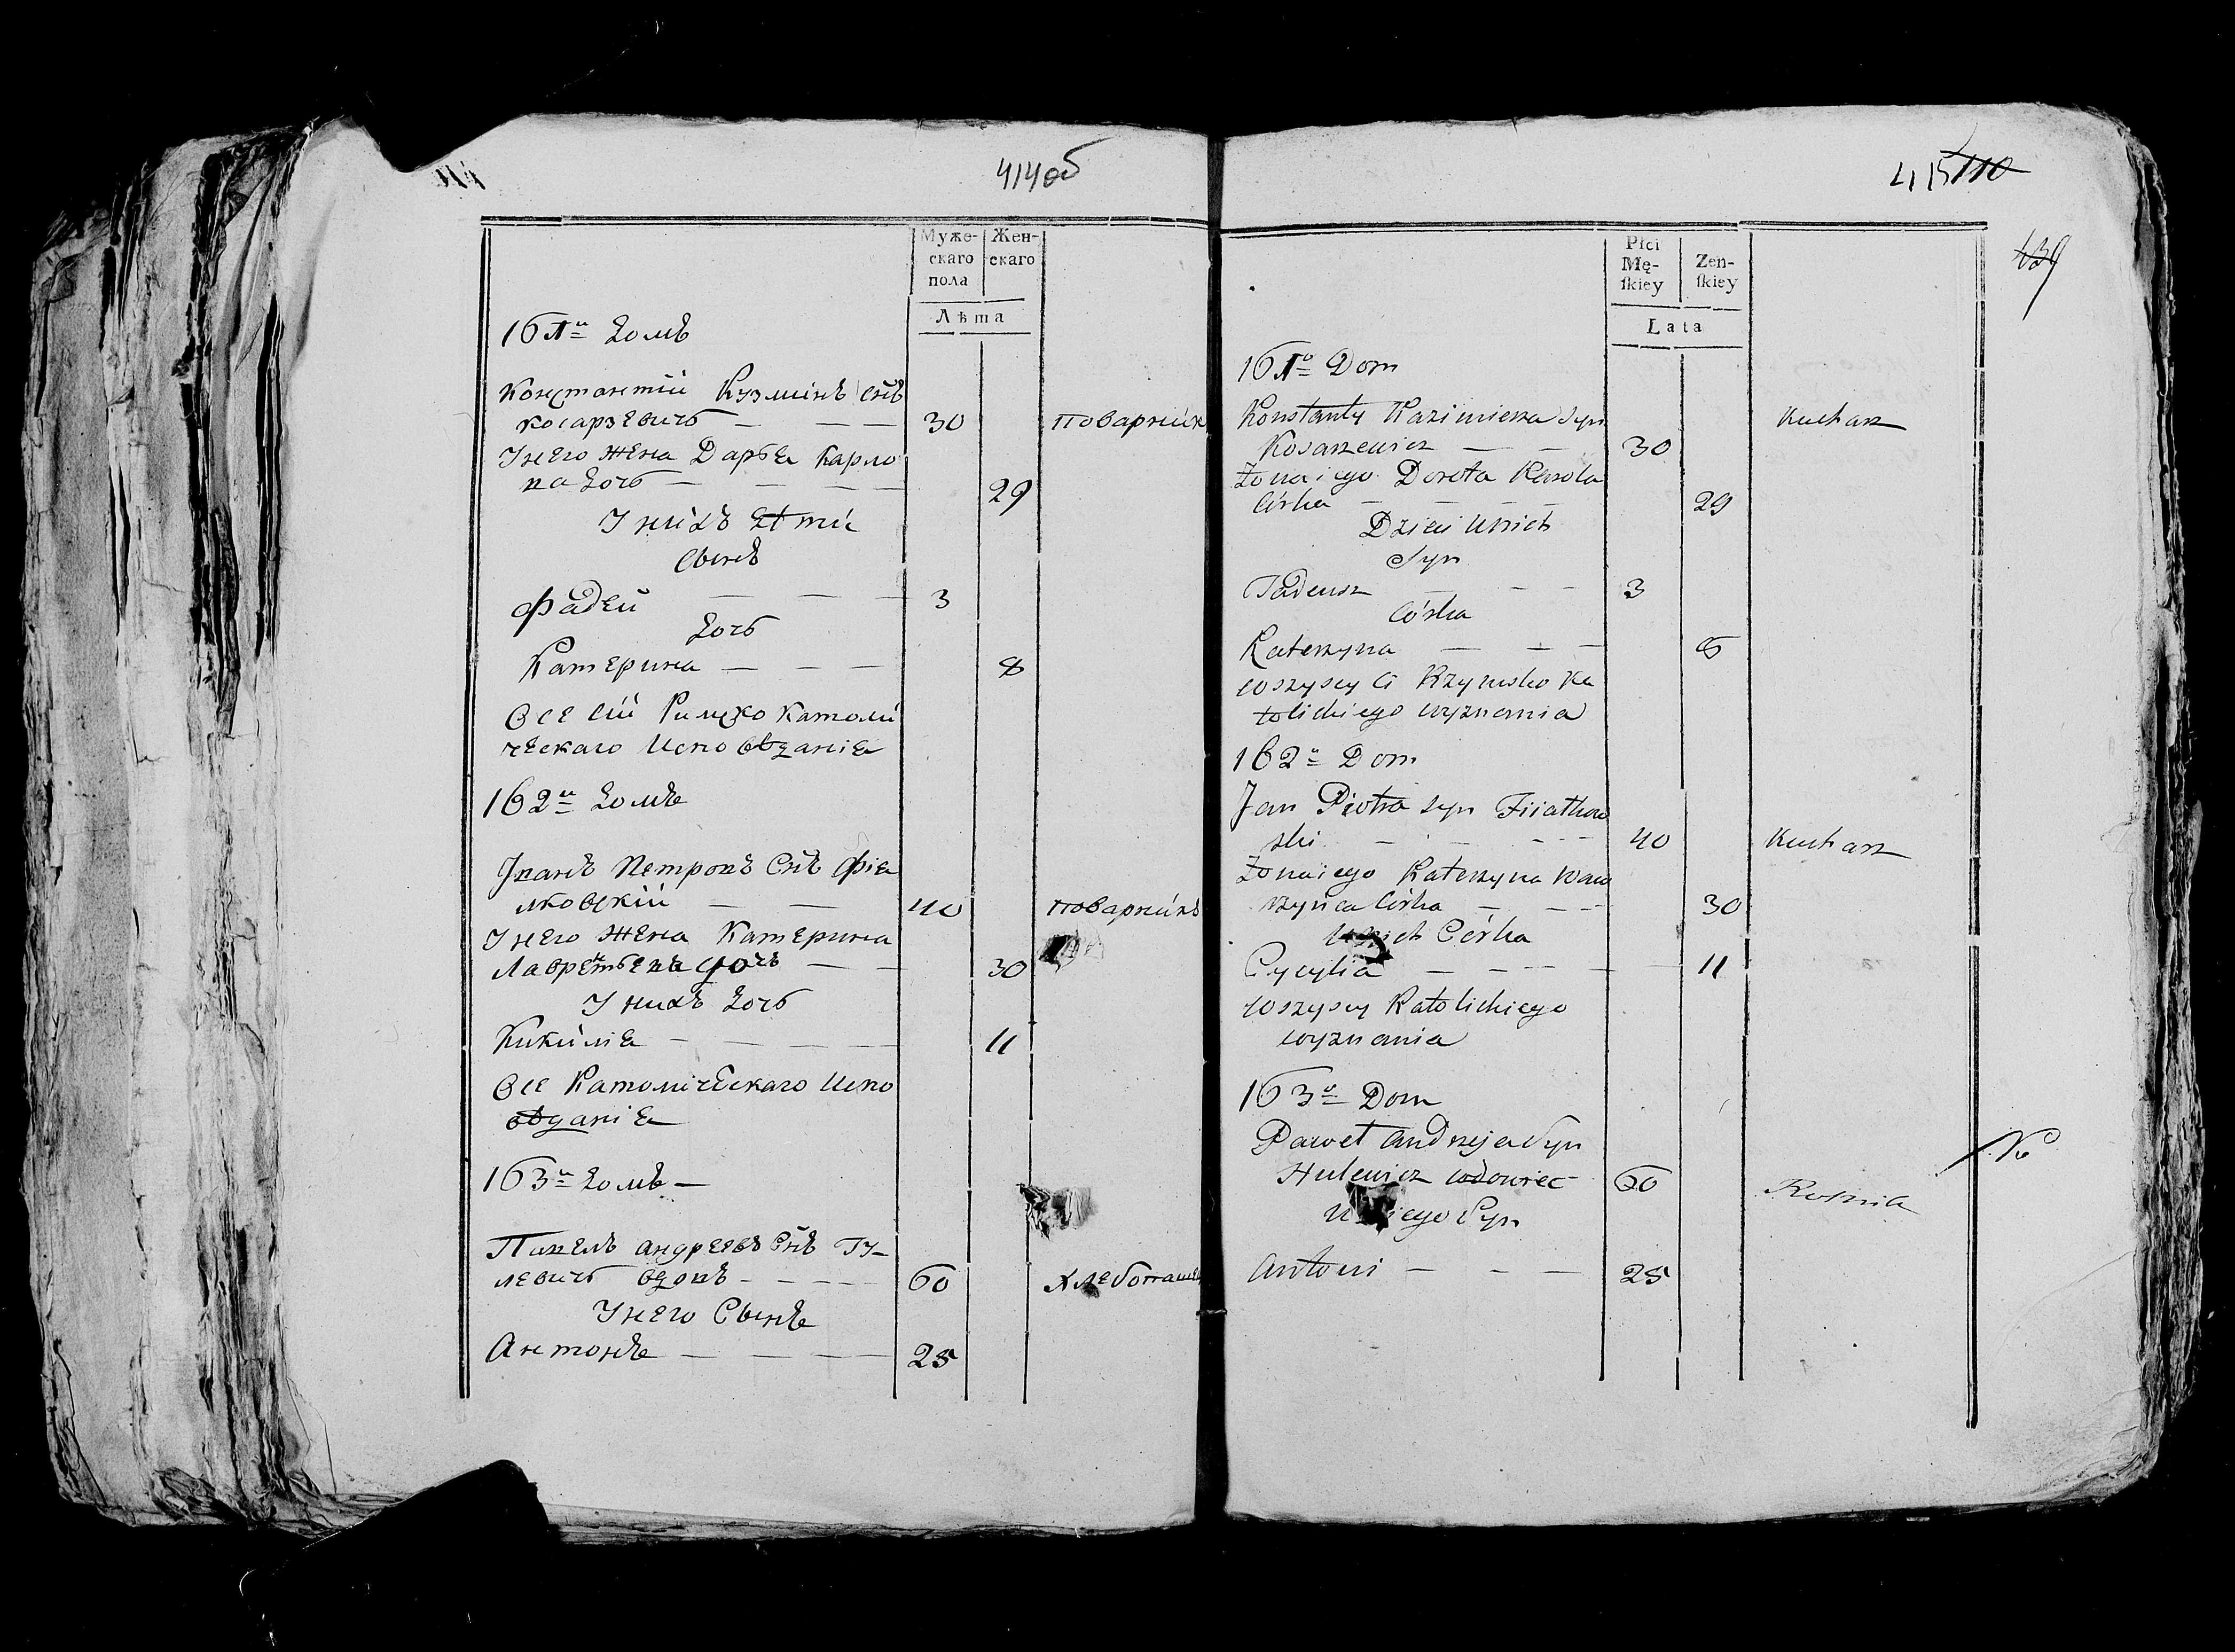 414об
Муже-
скаго
пола
Жен-
скаго
Лѣта
161й домъ
Константій Кузминъ снъ
косарзевичъ — — — 30 поварник
У него жена Дарья Карло
ва дочь — — — 29
У нихъ дѣти
Сынъ
Фадей — — — 3
дочь
Катерина — — — 8
Все сіи Римско Католи
ческаго Исповѣданія
162й домъ
Иванъ Петровъ Снъ Фія
лковскій — — 40 поварникъ
У него жена Катерина
Лаврентьева дочь — — 30
У нихъ дочь
Кикилія — — — — 11
Все Католическаго Испо
вѣданія
163й домъ —
Павелъ андреевъ Снъ Гу-
левичъ вдовъ - - - - 60
У него Сынъ
Антонъ — — — 25
415 110
139
Płci
Mę-
ſkiey
Zeń-
ſkiey
Lata
161й Dom
Konstanty Kazimierza syn Kucharz
Kosarzewicz — — 30
Żona iego Dorota Karola
Córka — — — 29
Dzieci U nich
Syn
Tadeusz — — 3
Córka
Katerzyna — — — 6
wszyscy ci Rzymsko Ka
tolickiego wyznania
162й Dom
Jan Piotra syn Fiiałkow
ski — — - - - 40 Kucharz
Żona iego Katerzyna Waw
rzyńca Córka — - - - 30
U nich Córka
Cycylia — — - - — — 11
wszyscy Katolickiego
wyznania
163й Dom
Paweł Andrzeja Syn
Hulewicz wdowiec - 60 Rolnik
U niego Syn
Antoni — — — 25